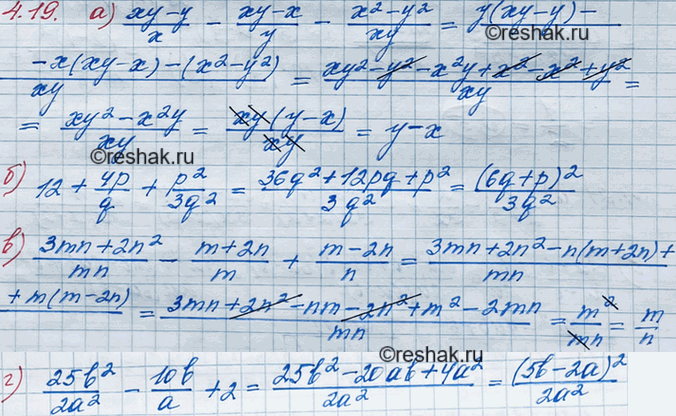 4.19. а) (xy-y)/x - (xy-x)/y - (x²-y²)/xy = (y(xy-y)-
-x(xy-x)-(x²-y²))/xy = (xy²-y²-x²y+x²-x²+y²)/xy =
= (xy²-x²y)/xy = xy(y-x)/xy = y-x
©reshak.ru
©reshak.ru
б) 12 + 4p/q + p²/3q² = (36q²+12pq+p²)/3q² = (6q+p)²/3q²
©reshak.ru
в) (3mn+2n²)/mn - (m+2n)/m + (m-2n)/n = (3mn+2n²-n(m+2n)+
+m(m-2n))/mn = (3mn+2n²-nm-2n²+m²-2mn)/mn = m²/mn = m/n
©reshak.ru
г) 25b²/2a² - 10b/a + 2 = (25b²-20ab+4a²)/2a² = (5b-2a)²/2a²
©reshak.ru